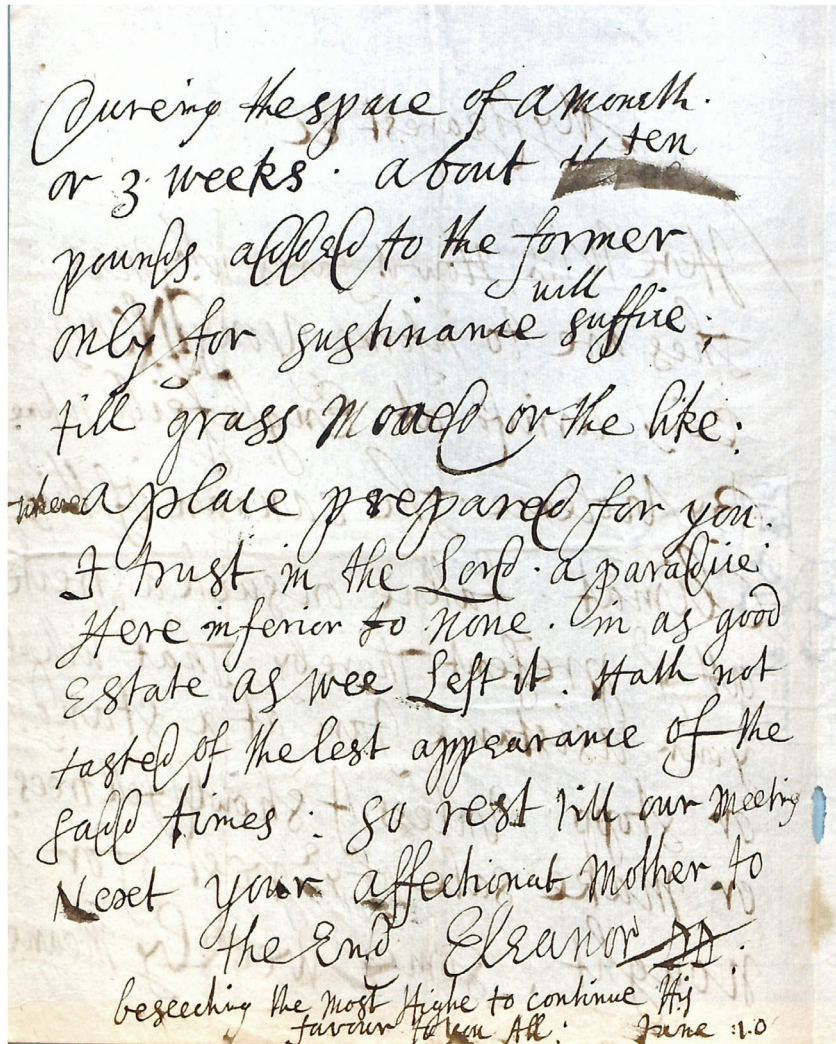 Dureing the space of a moneth.
or 3 weeks. about ten
pounds added to the former
only for sustinance will suffice;
till grass mowed or the like:
where a place prepared for you.
I trust in the Lord. a paradice
Here inferior to none. in as good
Estate as wee Left it. Hath not
tasted of the lest appearance of the
sadd times: so rest till our meeting
Next your affectionat Mother to
the End Eleanor
beseeching the most Highe to continue His
favour to you All: June :10